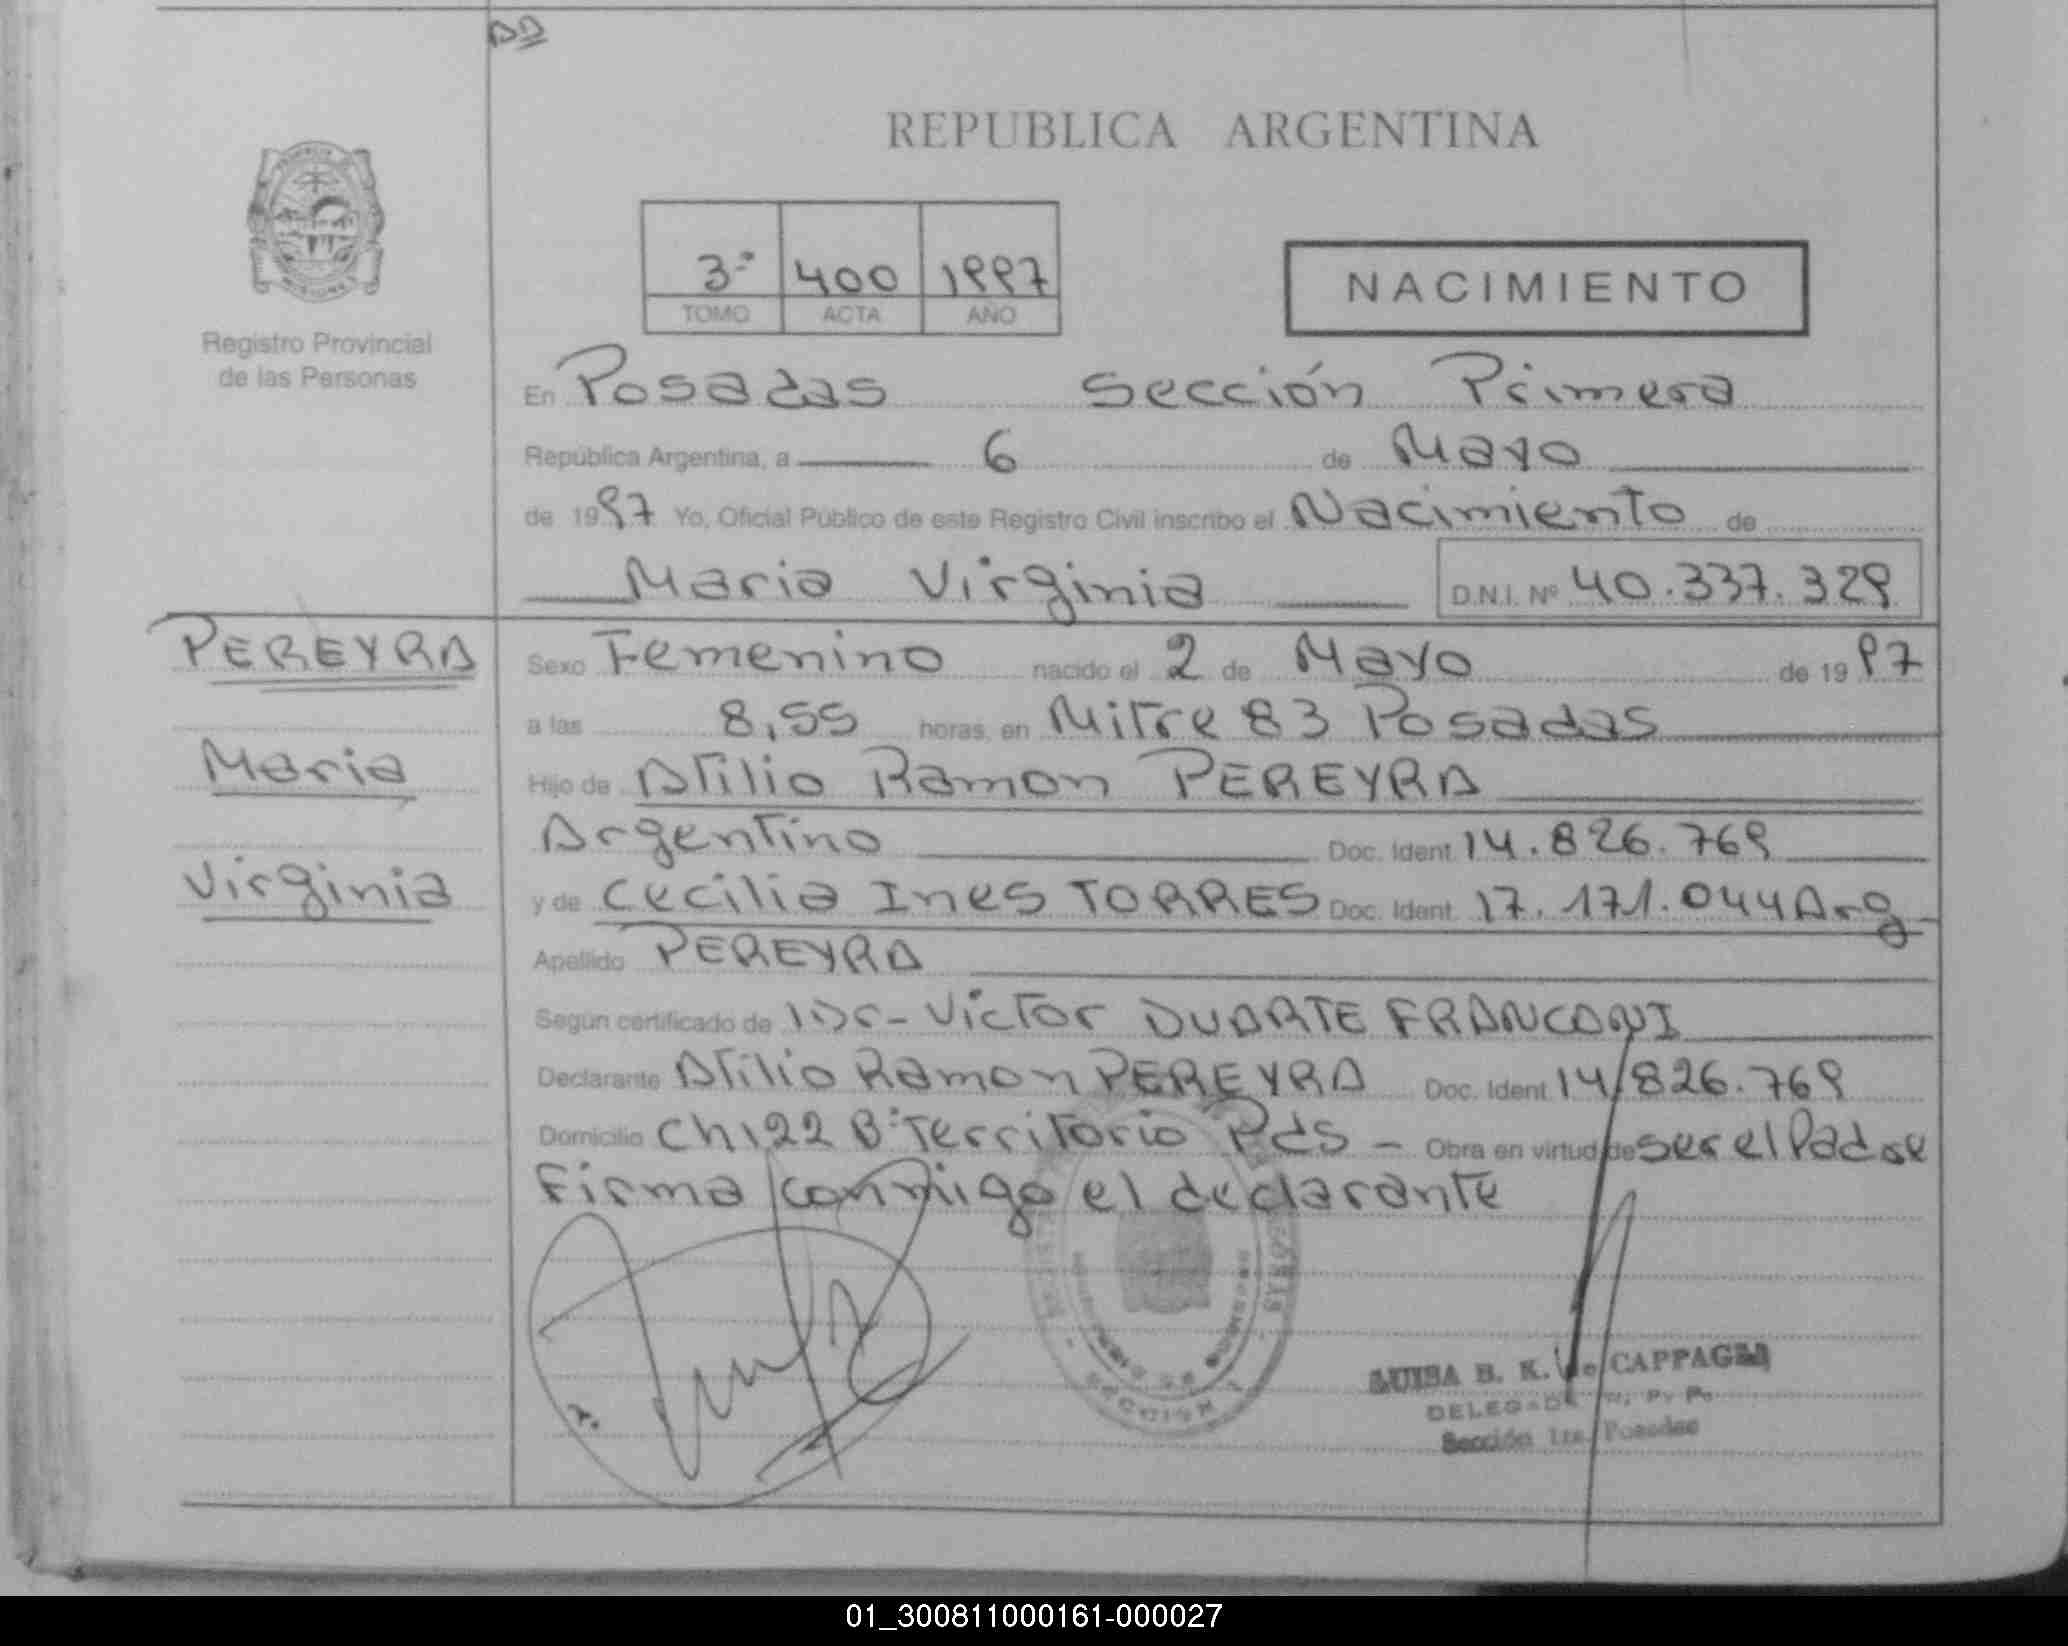 REPUBLICA ARGENTINA
3º 400 1997
TOMO ACTA AÑO
NACIMIENTO
Registro Provincial
de las Personas
En Posadas Sección Primera
República Argentina, a 6 de Mayo
de 1997 Yo, Oficial Público de este Registro Civil inscribo el Nacimiento de
Maria Virginia D.N.I. Nº 40.337.329
PEREYRA
Maria
Virginia
Sexo Femenino nacido el 2 de Mayo de 1997
a las 8,55 horas, en Mitre 83 Posadas
Hijo de Atilio Ramon PEREYRA
Argentino Doc. Ident. 14.826.769
y de Cecilia Ines TORRES Doc. Ident. 17.171.044 Arg
Apellido PEREYRA
Según certificado de Dr- Victor DUARTE FRANCONI
Declarante Atilio Ramon PEREYRA Doc. Ident. 14.826.769
Domicilio Ch 122 Bº Territorio Pds - Obra en virtud de ser el Padre
Firma conmigo el declarante
SECCION 1
LUISA B. K. de CAPPAGLI
Sección 1ra. Posadas
01_300811000161-000027